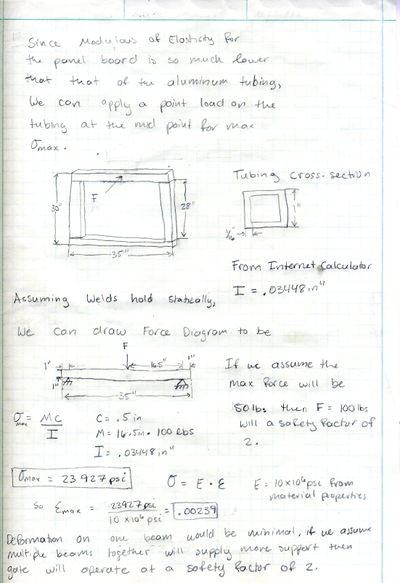 Since Modulous of Elasticity for
the panel board is so much lower
that that of the aluminum tubing,
We can apply a point load on the
tubing at the mid point for max
σmax.
Tubing cross-section
F
30"
28"
35"
1"
1/16"
From Internet Calculator
I = .03448 in⁴
Assuming Welds hold statically,
We can draw Force Diagram to be
F
1"
16.5"
1"
1"
35"
If we assume the
max force will be
50 lbs then F = 100 lbs
will a safety factor of
2.
σmax = Mc / I
C = .5 in
M = 16.5in · 100 lbs
I = .03448 in⁴
σmax = 23927 psi
σ = E · ε
E = 10x10⁶ psi from
material properties
So εmax = 23927 psi / 10 x10⁶ psi = .00239
Deformation on one beam would be minimal, if we assume
multiple beams together will supply more support then
gate will operate at a safety factor of 2.